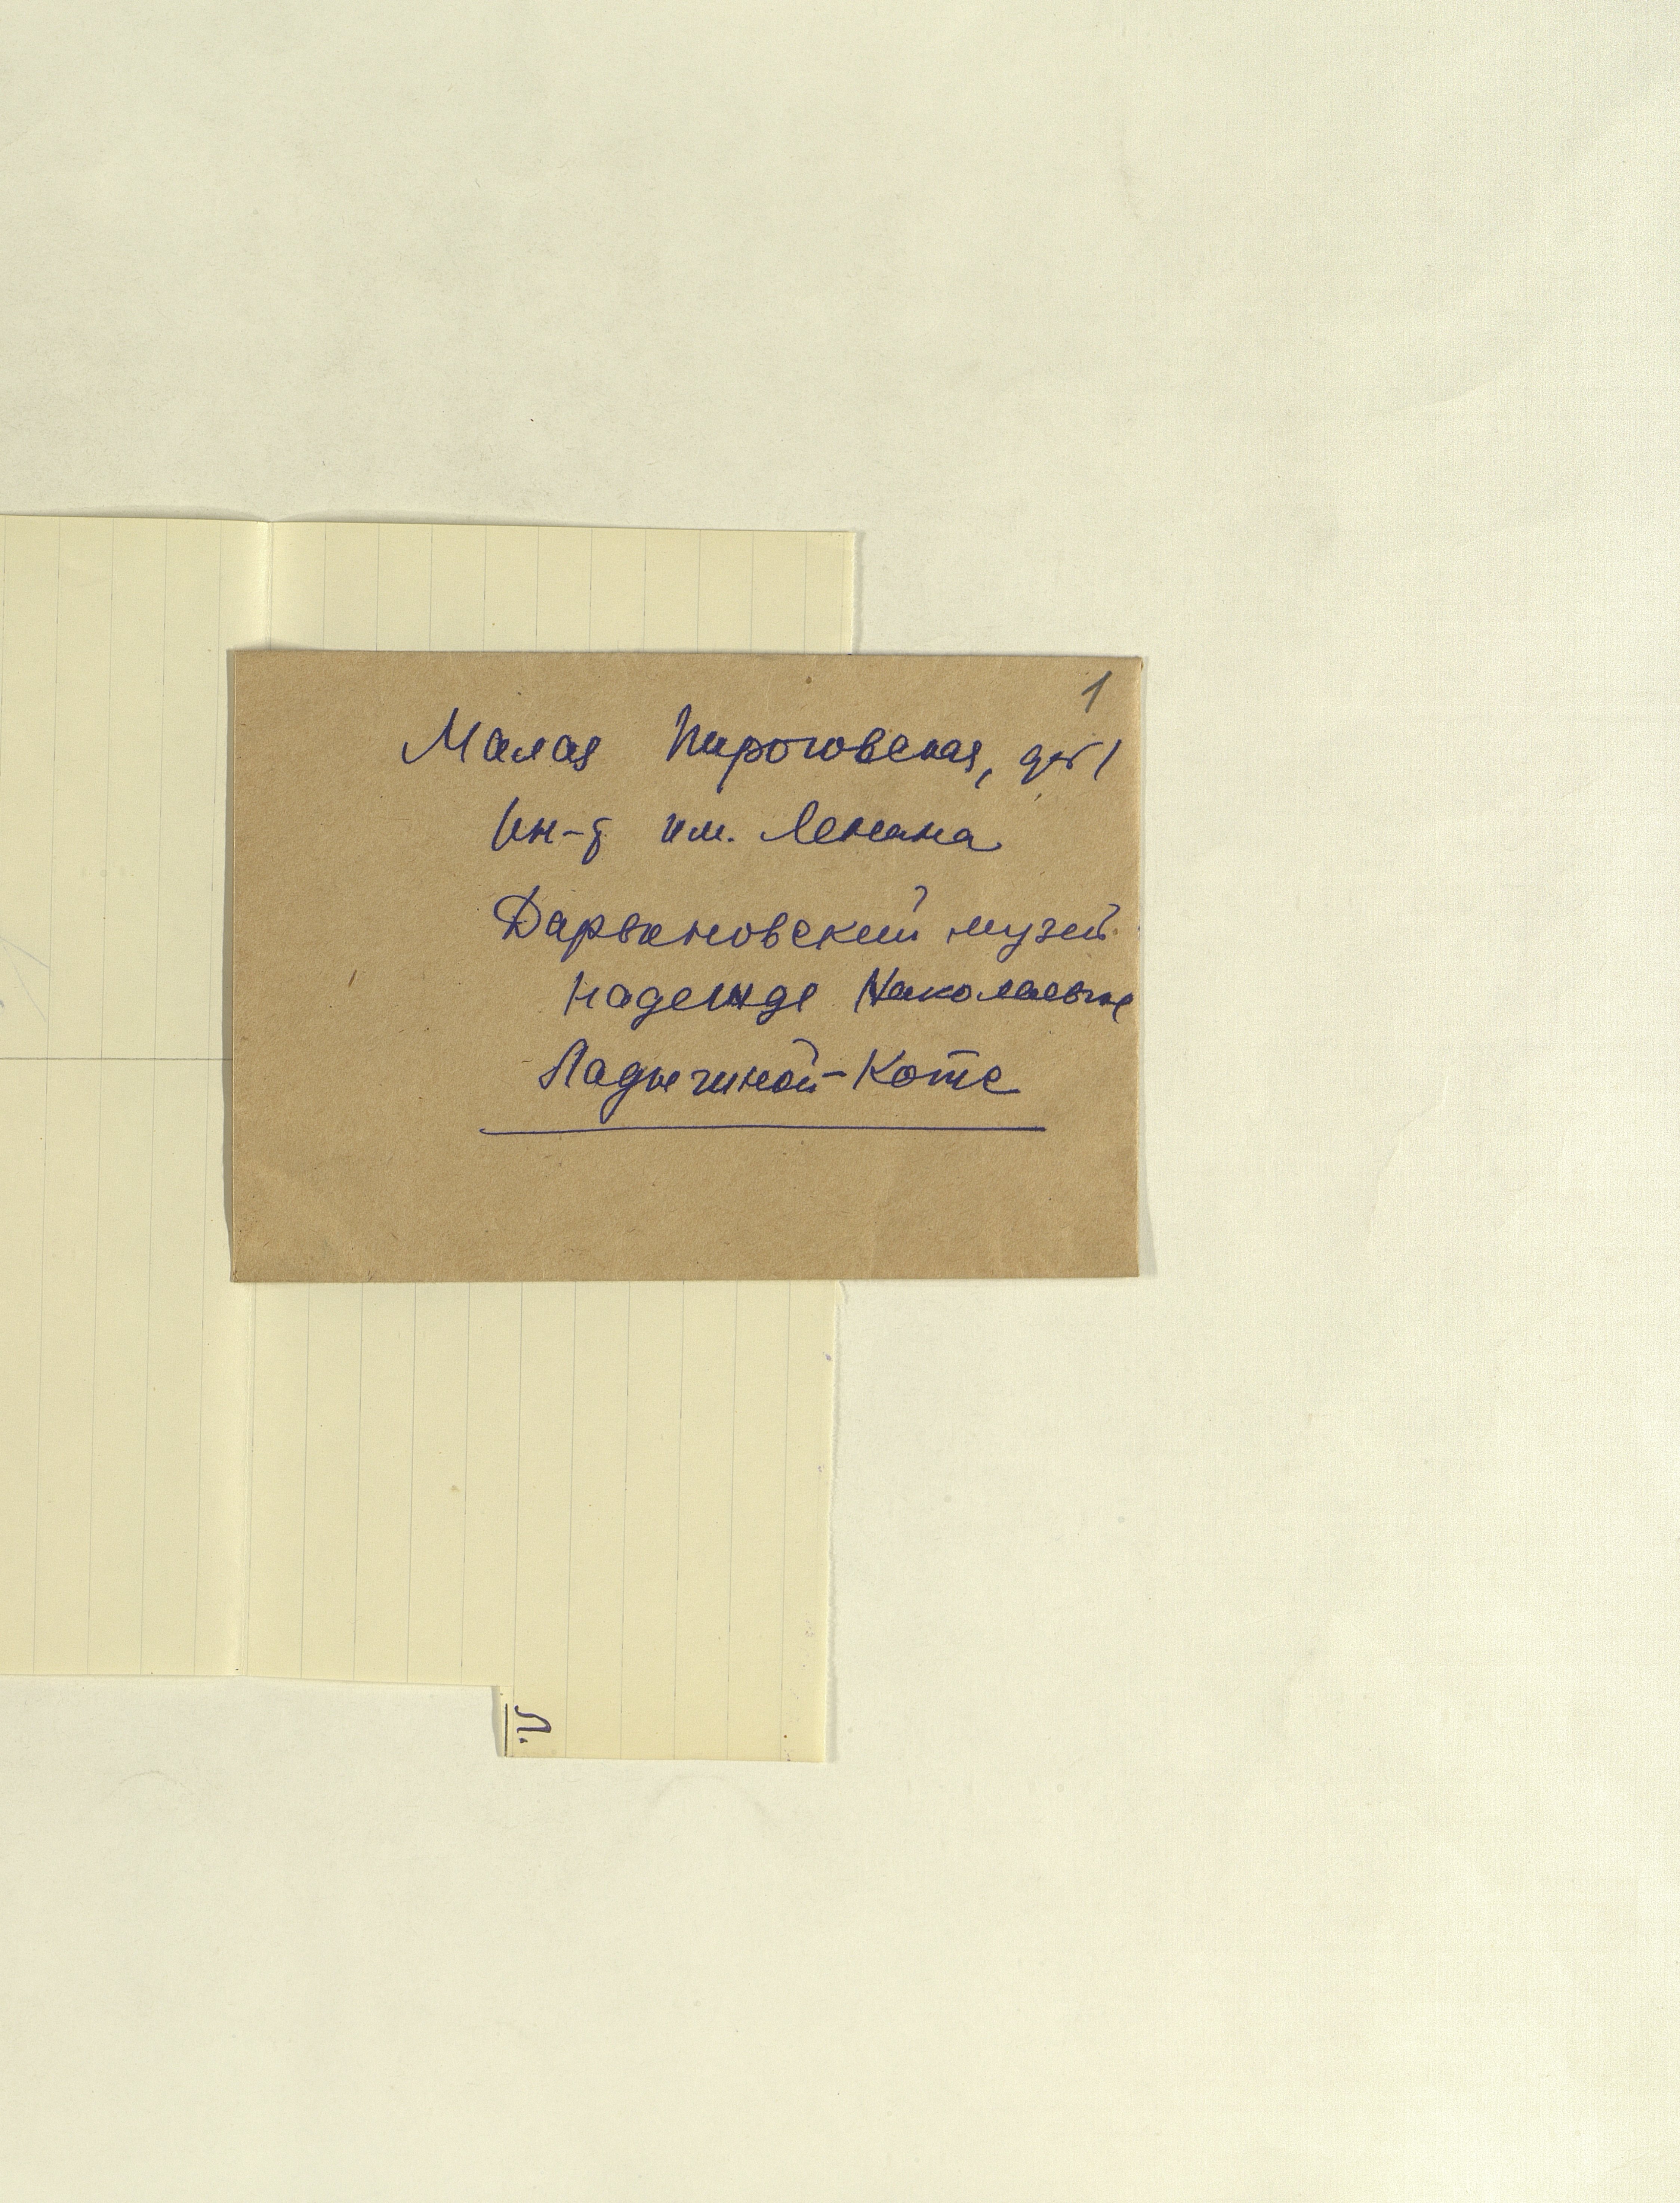 1
Малая Пироговская, д№1
Ин-т им. Ленина
Дарвиновский музей
Надежде Николаевне
Ладыгиной-Котс
Л.